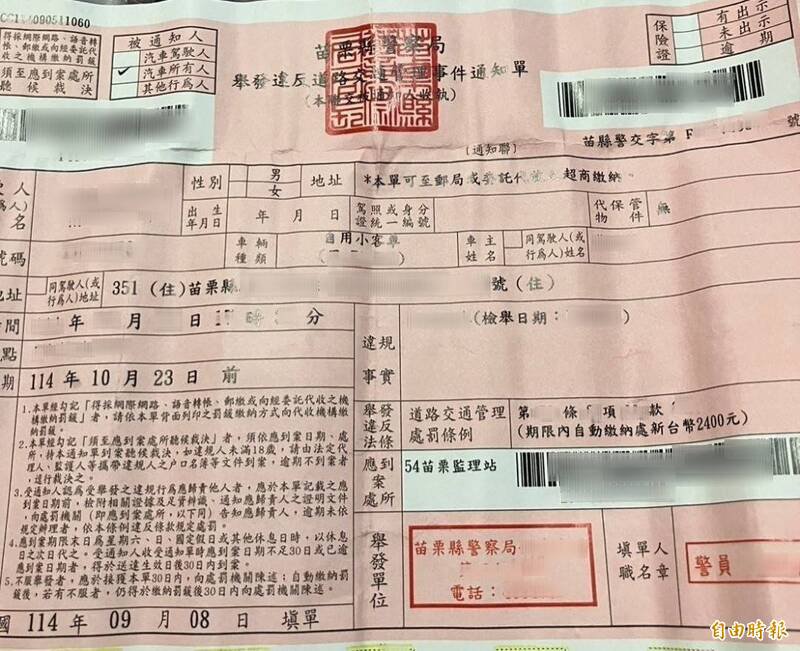 得採網際網路、語音轉
帳、郵繳或向經委託代
收之機構繳納罰鍰
須至應到案處所
聽候裁決
被通知人
汽車駕駛人
✓ 汽車所有人
其他行為人
苗栗縣警察局
舉發違反道路交通管理事件通知單
(通知聯)
保險證
有出示
未出示
逾期
苗縣警交字第 F
號
性別
男
女
地址
*本單可至郵局或委託代
超商繳納
出生
年月日
年 月 日
駕照或身分
證統一編號
代保管
物件
無
號碼
車輛
種類
自用小客車
車主
姓名
同駕駛人(或
行為人)姓名
地址
同駕駛人(或
行為人)地址
351 (住)苗栗縣
號(住)
年 月 日
分
違規
事實
(檢舉日期:
)
114 年 10 月 23 日 前
1.本單經勾記「得採網際網路、語音轉帳、郵繳或向經委託代收之機
構繳納罰鍰」者,請依本單背面列印之罰鍰繳納方式向代收機構繳
納罰鍰。
2.本單經勾記「須至應到案處所聽候裁決」者,須依應到案日期、處
所,持本通知單到案聽候裁決,如違規人未滿18歲,請由法定代
理人、監護人等攜帶違規人之戶口名簿等文件到案,逾期不到案者
,逕行裁決之。
3.受通知人認為受舉發之違規行為應歸責他人者,應於本單記載之應
到案日期前,檢附相關證據及足資辨識、通知應歸責人之證明文件
,向處罰機關(即應到案處所,以下同)告知應歸責人,逾期未依
規定辦理者,依本條例違反條款規定處罰。
4.應到案期限末日為星期六、日、國定假日或其他休息日時,以休息
日之次日代之。受通知人收受通知單時應到案日期不足30日或已逾
應到案日期者,得於送達生效日後30日內到案。
5.不服舉發者,應於接獲本單30日內,向處罰機關陳述;自動繳納罰
鍰後,若有不服者,仍得於繳納罰鍰後30日內向處罰機關陳述。
舉發
違反
法條
道路交通管理
處罰條例
第 條 項 款
(期限內自動繳納處新台幣2400元)
應到
案
處所
54苗栗監理站
舉發
單位
苗栗縣警察局
電話:
填單人
職名章
警員
國 114 年 09 月 08 日 填單
自由時報